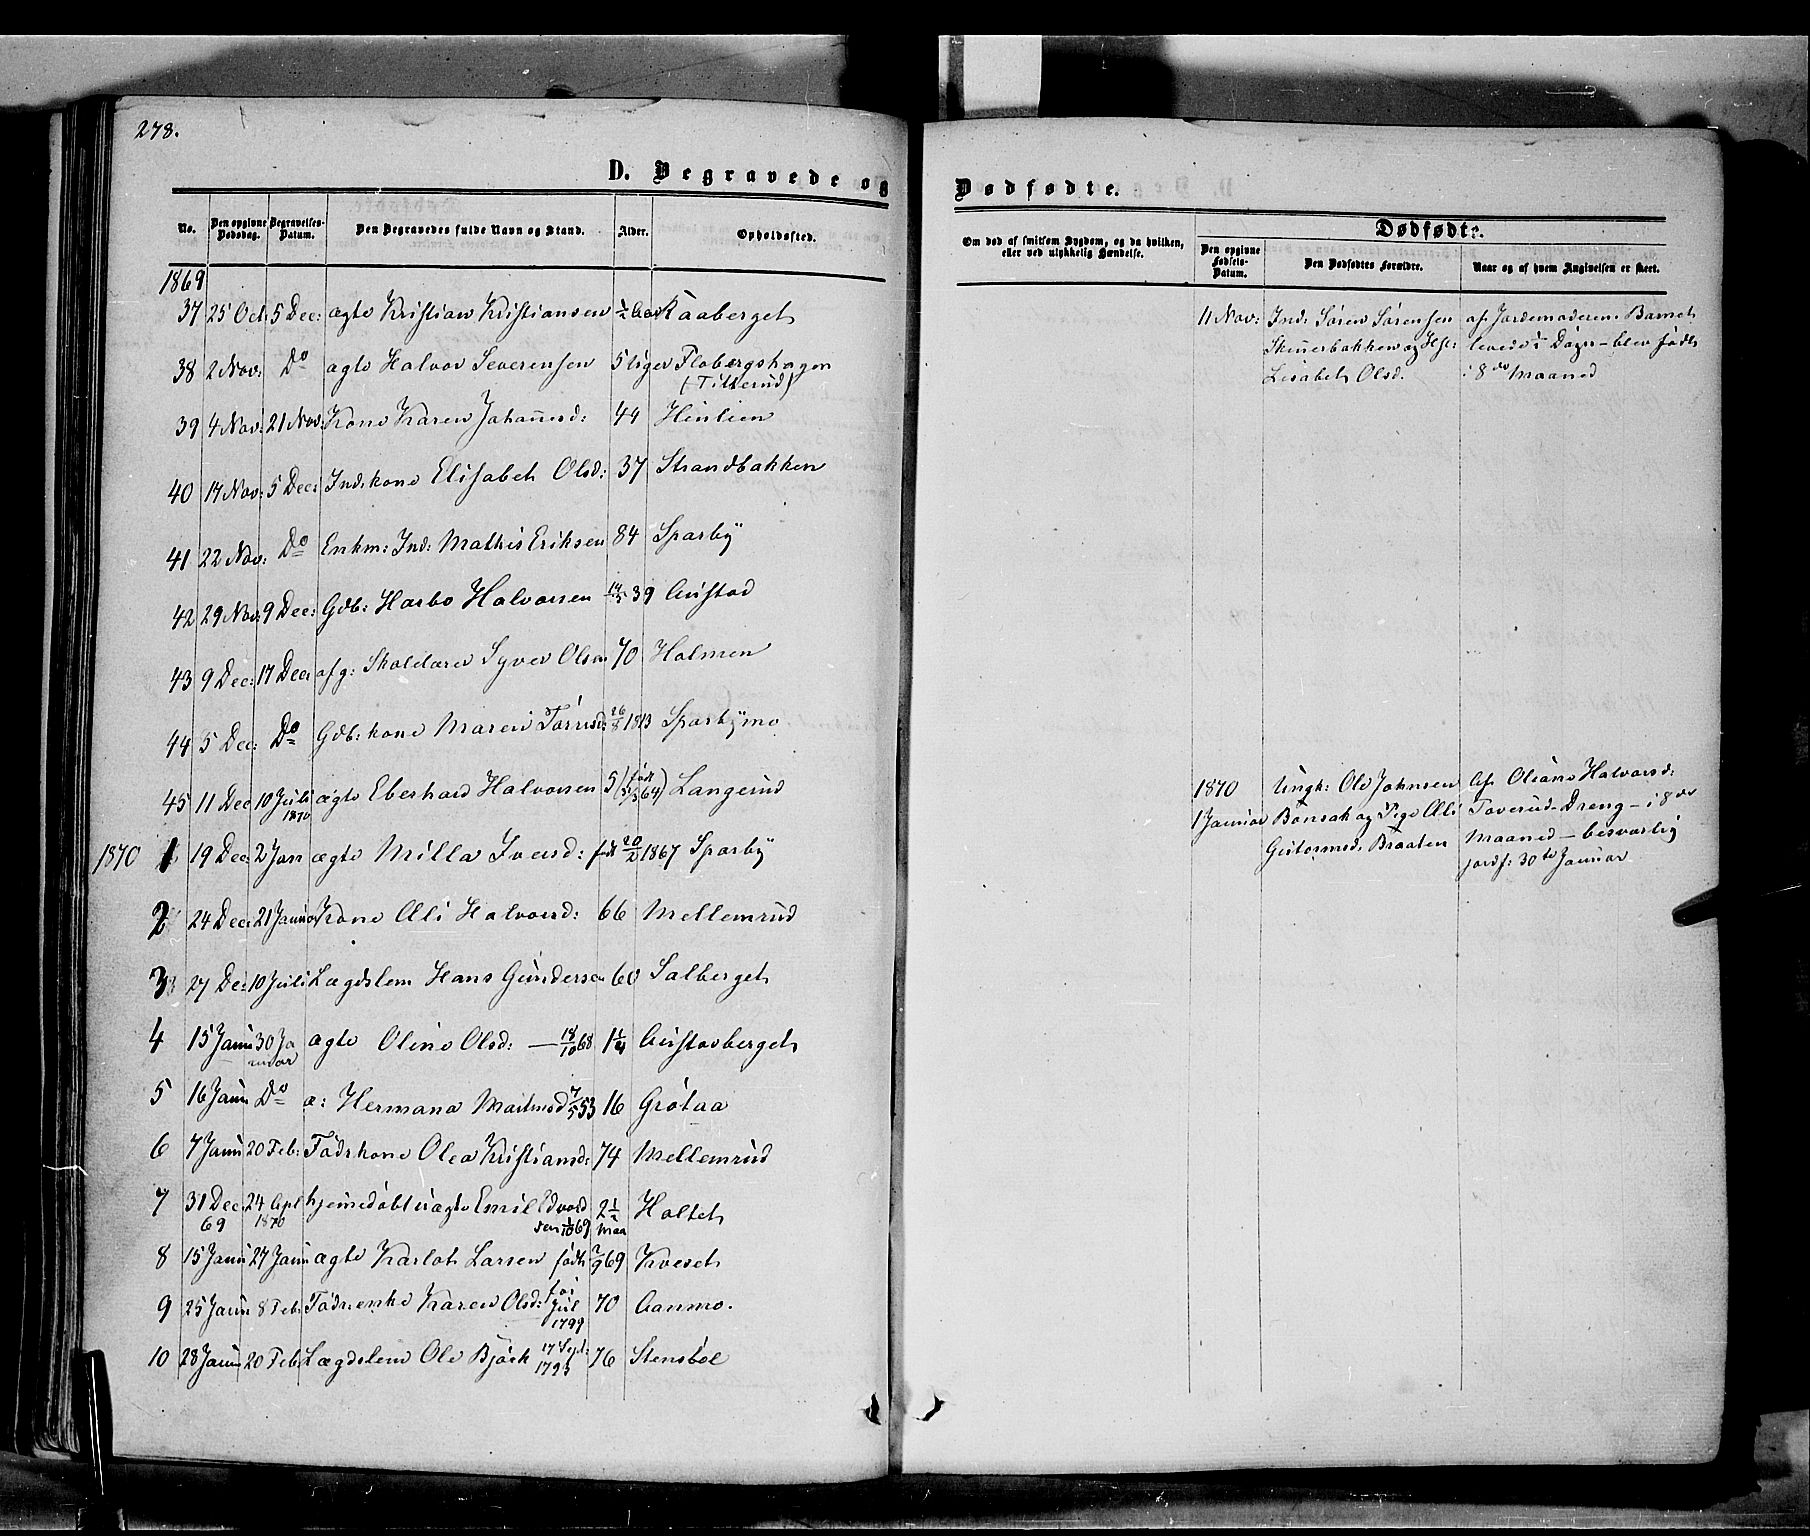 278.
D. Begravede og Dødfødte.
No. Den opgivne Dødsdag. Begravelses-Datum. Den Begravedes fulde Navn og Stand. Alder. Opholdssted.
Om død af smitsom Sygdom, og da hvilken, eller ved ulykkelig Hændelse. Dødfødte.
Den opgivne Fødsels-Datum. Den Dødfødtes Forældre. Naar og af hvem Angivelsen er skeet.
1869
37 25 Oct. 5 Dec: ægte Kristian Kristiansen ½ Aar Kaaberget
38 2 Nov: Do ægte Halvor Severensen 5 Uger Flobergshagen
(Titterud)
39 4 Nov: 21 Nov: Kone Karen Johannesd: 44 Henlien
40 14 Nov: 5 Dec: Indskone Elisabet Olsd: 37 Strandbakken
41 22 Nov: Do Enkm: Ind: Mathis Eriksen 84 Sparby
42 29 Nov: 9 Dec: Gdb: Harbo Halvorsen 39 Austad
43 9 Dec: 17 Dec: afg: Skolelærer Syver Olsen 70 Holmen
44 5 Dec: Do Gdb: kone Maren Torersd: 26/8 1813 Sparbymo
45 11 Dec 10 Juli 1870 ægte Eberhard Halvorsen 5 (født 64) Langerud
1870 1 19 Dec: 2 Jan ægte Milla Iversd: født 20/2 1867 Sparby
2 24 Dec: 21 Januar Kone Oli Halvorsd: 66 Mellemrud
3 27 De: 10 Juli Lægdslem Hans Gundersen 60 Salberget
4 15 Janu 30 Januar ægte Oline Olsd: — 18/10 68 1¼ Austadberget
5 16 Janu Do æ: Hermana 7/5 53 16 Grøtaa
6 7 Janu 20 Feb:Føds kone Olea Kristiansd: 74 Mellemrud
7 31 Dec 69 24 Apl 1870 hjemmedøbt uægte Emil Edvard
sen 69 2½ Maa Holtet
8 15 Janu 27 Janu ægte Karlot Larsen født 69 Kveset
9 25 Janu 8 Feb: Føds: enke Karen Olsd: før Jul 1799 70 Aanmo.
10 28 Janu 20 Feb: Lægdslem Ole Bjørk 17 Sept: 1793 76 Stensbøl
11 Nov: Ind: Søren Sørensen
Skinerbakken og Hst:
Lisabet Olsd.
af Jordemoderen. Barnet
levede ½ Døgn – blev født
i 8de Maaned
1870
1 Januar
Ungk: Ole Johnsen
Bonsak og Pige Oli
Gutormsd. Braaten
Af Oliane Halvorsd:
Toverud – Dreng – i 8de
Maaned – besværlig
jordf: 30te Januar